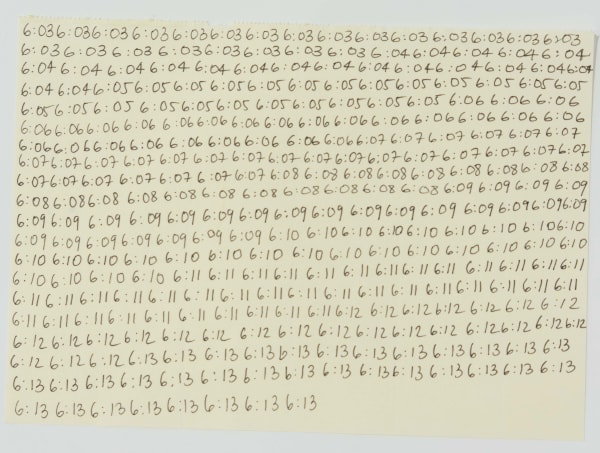 6:03 6:03 6:03 6:03 6:03 6:03 6:03 6:03 6:03 6:03 6:03 6:03 6:03 6:03 6:03
6:03 6:03 6:03 6:03 6:03 6:03 6:03 6:03 6:03 6:04 6:04 6:04 6:04 6:04
6:04 6:04 6:04 6:04 6:04 6:04 6:04 6:04 6:04 6:04 6:04 6:04 6:04 6:04 6:04
6:04 6:04 6:05 6:05 6:05 6:05 6:05 6:05 6:05 6:05 6:05 6:05 6:05 6:05 6:05
6:05 6:05 6:05 6:05 6:05 6:05 6:05 6:05 6:05 6:05 6:05 6:06 6:06 6:06
6:06 6:06 6:06 6:06 6:06 6:06 6:06 6:06 6:06 6:06 6:06 6:06 6:06 6:06 6:06
6:06 6:06 6:06 6:06 6:06 6:06 6:06 6:06 6:06 6:07 6:07 6:07 6:07 6:07 6:07
6:07 6:07 6:07 6:07 6:07 6:07 6:07 6:07 6:07 6:07 6:07 6:07 6:07 6:07 6:07 6:07
6:07 6:07 6:07 6:07 6:07 6:07 6:07 6:08 6:08 6:08 6:08 6:08 6:08 6:08 6:08 6:08
6:08 6:08 6:08 6:08 6:08 6:08 6:08 6:08 6:08 6:08 6:08 6:09 6:09 6:09 6:09
6:09 6:09 6:09 6:09 6:09 6:09 6:09 6:09 6:09 6:09 6:09 6:09 6:09 6:09 6:09 6:09
6:09 6:09 6:09 6:09 6:09 6:09 6:09 6:10 6:10 6:10 6:10 6:10 6:10 6:10 6:10 6:10
6:10 6:10 6:10 6:10 6:10 6:10 6:10 6:10 6:10 6:10 6:10 6:10 6:10 6:10 6:10
6:10 6:10 6:10 6:10 6:11 6:11 6:11 6:11 6:11 6:11 6:11 6:11 6:11 6:11 6:11 6:11 6:11
6:11 6:11 6:11 6:11 6:11 6:11 6:11 6:11 6:11 6:11 6:11 6:11 6:11 6:11 6:11 6:11 6:11
6:11 6:11 6:11 6:11 6:11 6:11 6:11 6:11 6:11 6:11 6:12 6:12 6:12 6:12 6:12 6:12 6:12
6:12 6:12 6:12 6:12 6:12 6:12 6:12 6:12 6:12 6:12 6:12 6:12 6:12 6:12 6:12 6:12
6:12 6:12 6:12 6:13 6:13 6:13 6:13 6:13 6:13 6:13 6:13 6:13 6:13 6:13 6:13
6:13 6:13 6:13 6:13 6:13 6:13 6:13 6:13 6:13 6:13 6:13 6:13 6:13 6:13 6:13
6:13 6:13 6:13 6:13 6:13 6:13 6:13 6:13